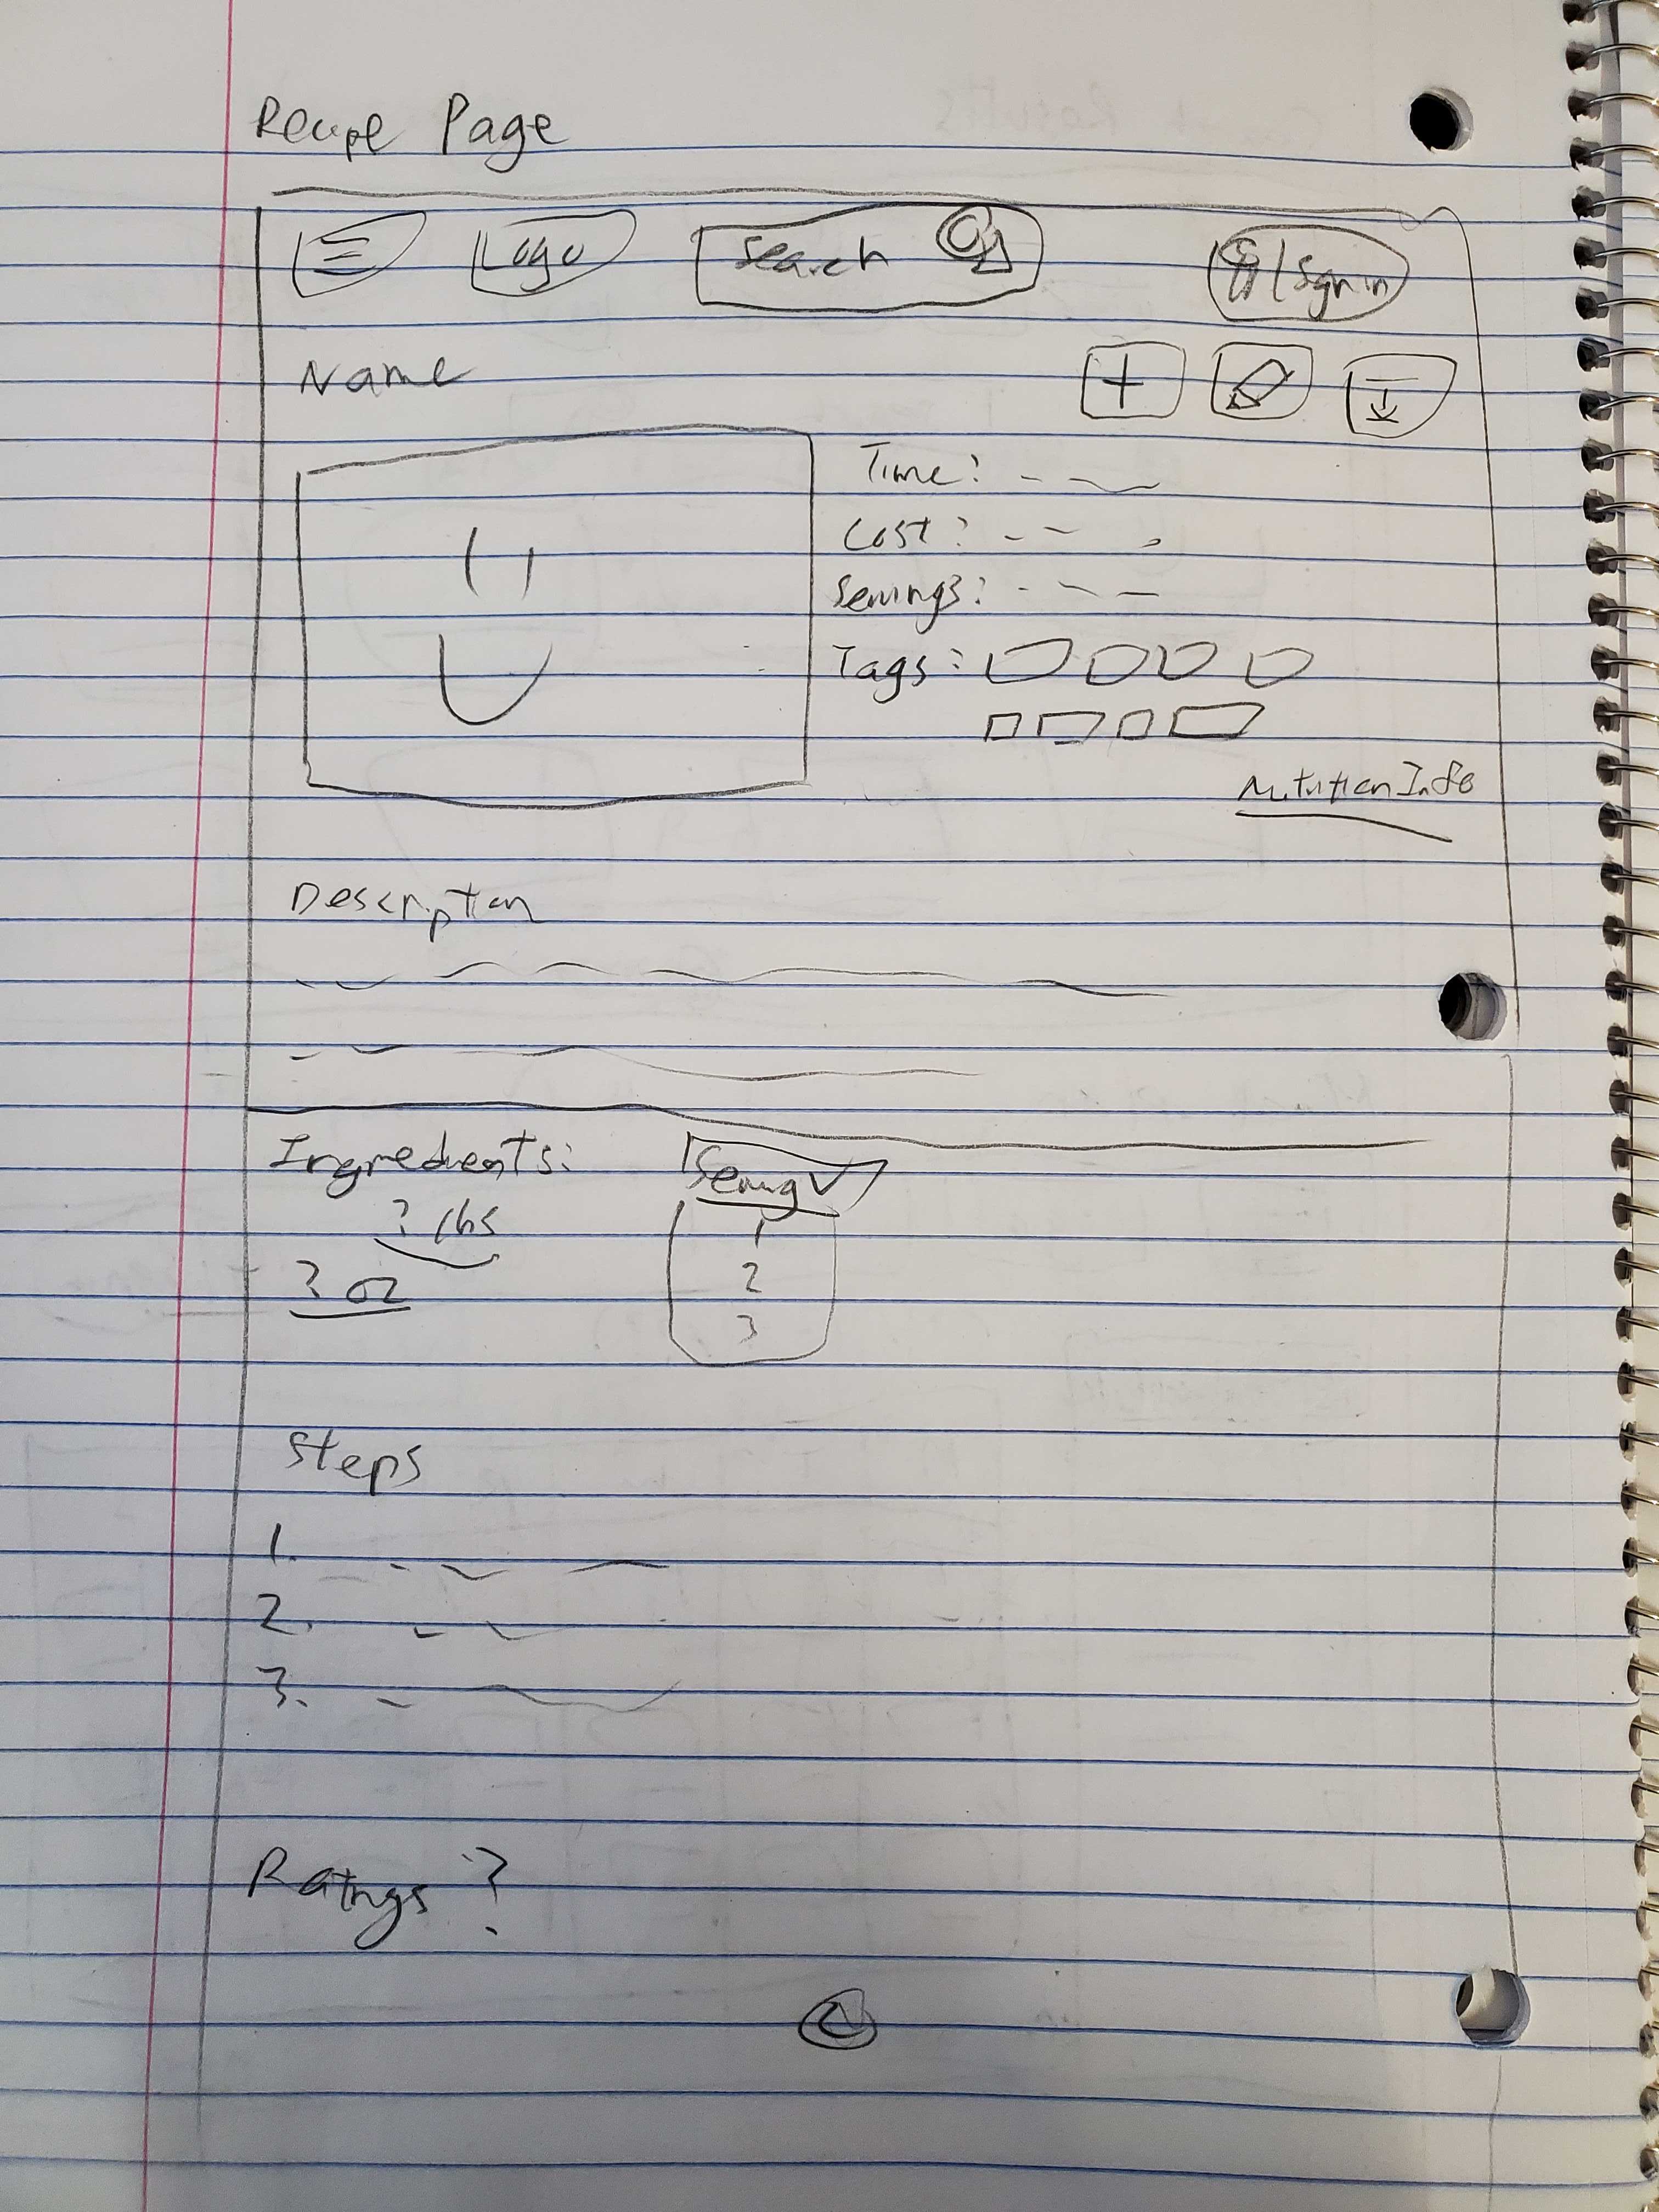 Recipe Page
Logo Search Sign in
Name
Time:
Cost:
Servings:
Tags:
Nutrition Info
Description
Ingredients: Serving
? lbs 1
? oz 2
3
Steps
1.
2.
3.
Ratings ?